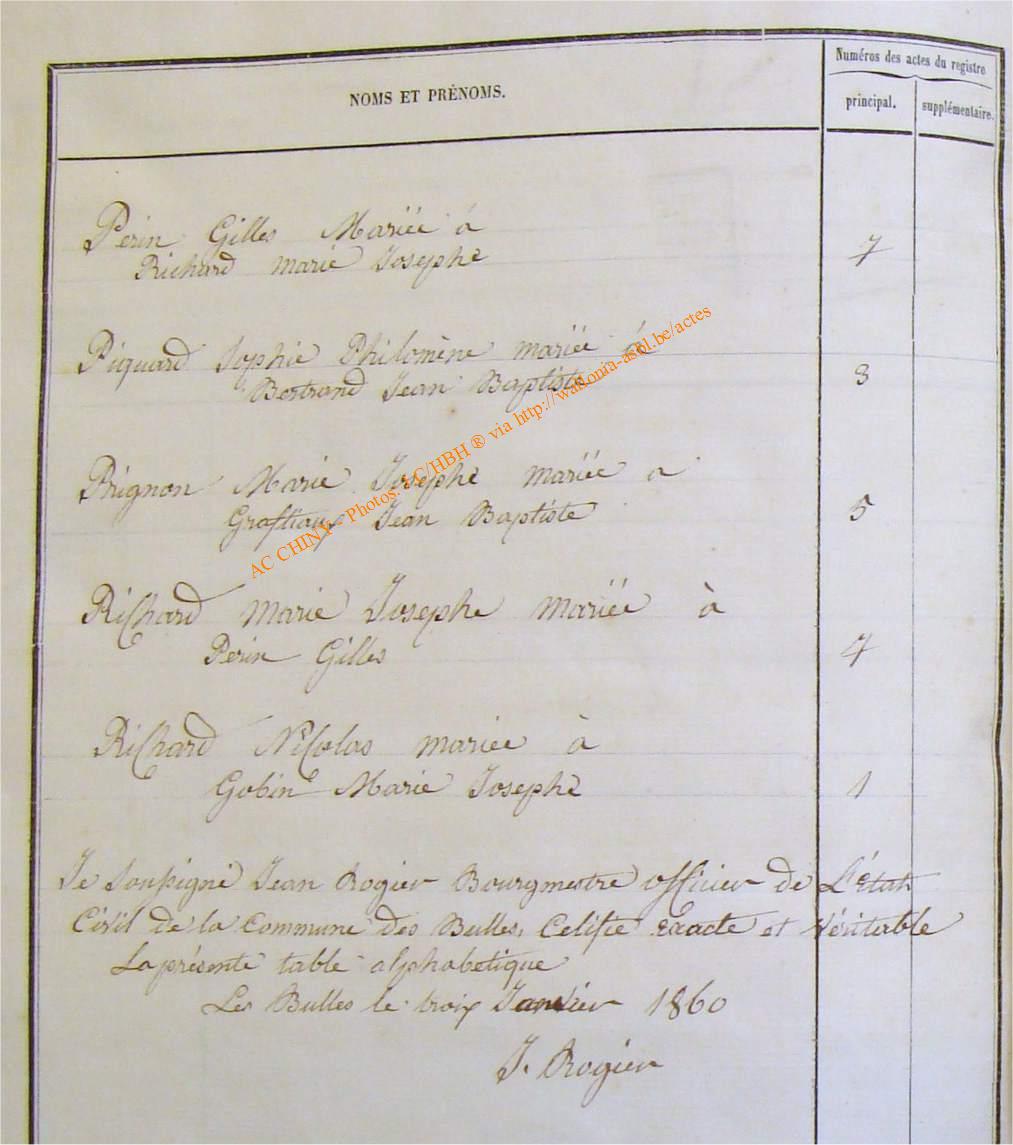 NOMS ET PRÉNOMS.
Numéros des actes du registre
principal.
supplémentaire.
Perin Gilles Mariée à
Richard marie Josephe
7
Piquard Sophie Philomène mariée à
Bertrand Jean Baptiste
3
Prignon Marie Josephe mariée a
Graftiaux Jean Baptiste
5
Richard Marie Josephe mariée à
Perin Gilles
7
Richard Nicolas mariée à
Gobin Marie Josephe
1
Je Soussigné Jean Rogier Bourgmestre officier de L'état
Civil de la Commune des Bulles, Celifie Exacte et Véritable
La présente table alphabetique
Les Bulles le troix Janvier 1860
J. Rogier
AC CHINY - Photos: /HBH ® via http://wallonia-asbl.be/actes